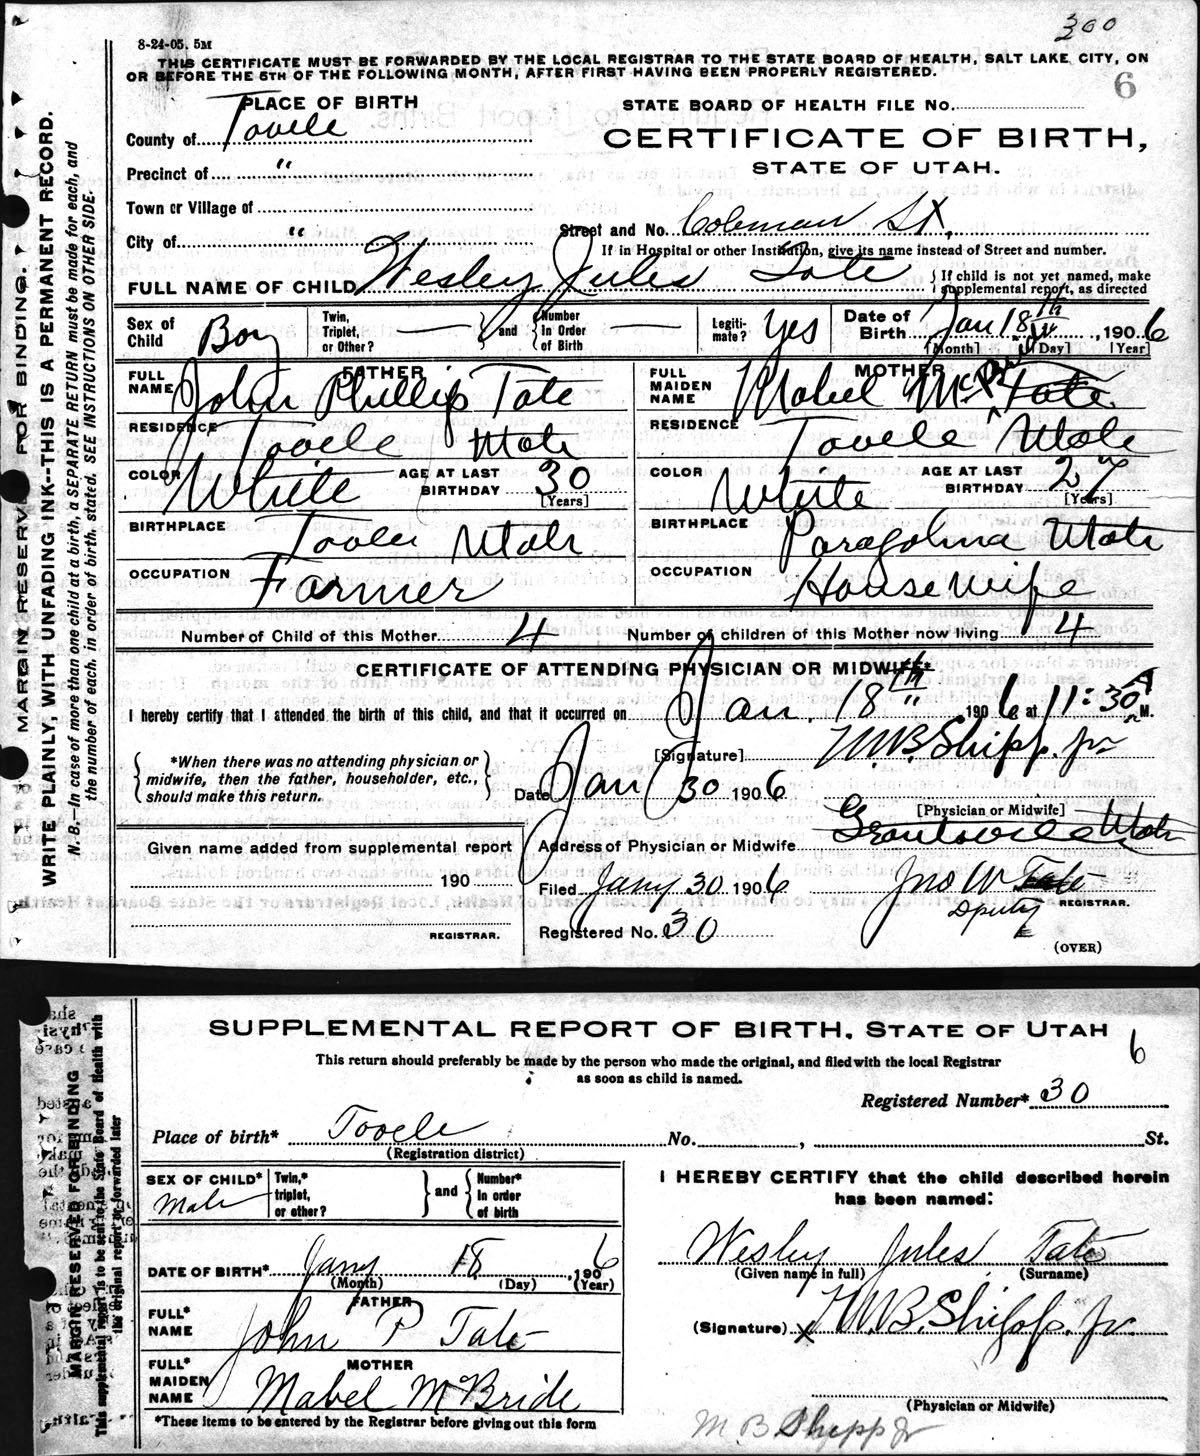 300
8-24-05. 5M
THIS CERTIFICATE MUST BE FORWARDED BY THE LOCAL REGISTRAR TO THE STATE BOARD OF HEALTH, SALT LAKE CITY, ON
OR BEFORE THE 5TH OF THE FOLLOWING MONTH, AFTER FIRST HAVING BEEN PROPERLY REGISTERED.
6
PLACE OF BIRTH
STATE BOARD OF HEALTH FILE No.
County of Tooele
CERTIFICATE OF BIRTH,
STATE OF UTAH.
Precinct of "
Town or Village of
Street and No. Coleman St,
City of "
If in Hospital or other Institution, give its name instead of Street and number.
FULL NAME OF CHILD Wesley Jules Tate
If child is not yet named, make
supplemental report, as directed
Sex of Child Boy
Twin, Triplet, or Other? — and Number In Order of Birth —
Legiti-mate? Yes
Date of Birth Jan 18th, 1906
[Month] [Day] [Year]
FATHER
FULL NAME John Phillip Tate
RESIDENCE Tooele Utah
COLOR White AGE AT LAST BIRTHDAY 30
[Years]
BIRTHPLACE Tooele Utah
OCCUPATION Farmer
MOTHER
FULL MAIDEN NAME Mabel McBride Tate
RESIDENCE Tooele Utah
COLOR White AGE AT LAST BIRTHDAY 27
[Years]
BIRTHPLACE Paragohna Utah
OCCUPATION Housewife
Number of Child of this Mother 4 Number of children of this Mother now living 4
CERTIFICATE OF ATTENDING PHYSICIAN OR MIDWIFE*
I hereby certify that I attended the birth of this child, and that it occurred on Jan. 18th, 1906 at 11:30 A M.
*When there was no attending physician or
midwife, then the father, householder, etc.,
should make this return.
[Signature] W.B. Shipp. Jr
Date Jan 30 1906
[Physician or Midwife]
Address of Physician or Midwife Grantsville Utah
Given name added from supplemental report
190
REGISTRAR.
Filed Jany 30 1906 Jno W Tate
Deputy REGISTRAR.
Registered No. 30
(OVER)
MARGIN RESERVED FOR BINDING.
WRITE PLAINLY, WITH UNFADING INK--THIS IS A PERMANENT RECORD.
N. B.—In case of more than one child at a birth, a SEPARATE RETURN must be made for each, and
the number of each, in order of birth, stated. SEE INSTRUCTIONS ON OTHER SIDE.
SUPPLEMENTAL REPORT OF BIRTH, STATE OF UTAH
6
This return should preferably be made by the person who made the original, and filed with the local Registrar
as soon as child is named.
Registered Number* 30
Place of birth* Tooele No. , St.
(Registration district)
SEX OF CHILD* Male
Twin,* triplet, or other? and Number* In order of birth
DATE OF BIRTH* Jany 18, 1906
(Month) (Day) (Year)
FATHER
FULL* NAME John P Tate
MOTHER
FULL* MAIDEN NAME Mabel McBride
*These items to be entered by the Registrar before giving out this form
I HEREBY CERTIFY that the child described herein
has been named:
Wesley Jules Tate
(Given name in full) (Surname)
(Signature) x W.B. Shipp. Jr.
(Physician or Midwife)
M B Shipp Jr
MARGIN RESERVED FOR BINDING
This supplemental report is to be sent to the State Board of Health with
the original report or forwarded later